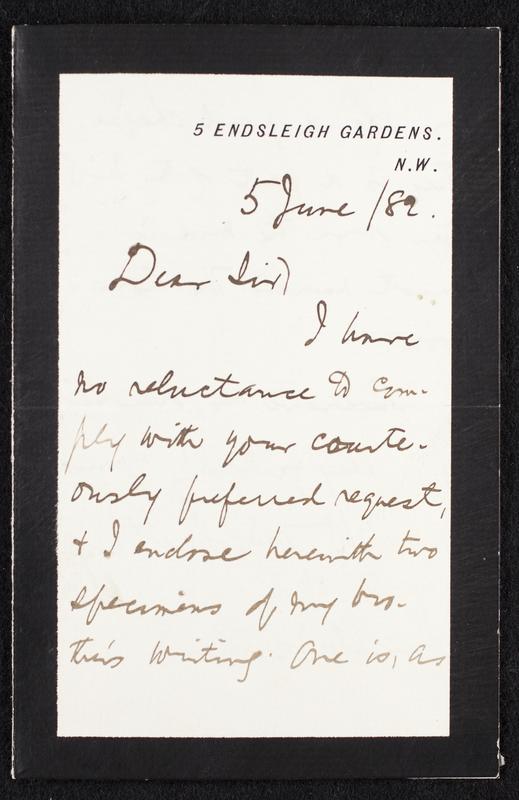 5 ENDSLEIGH GARDENS.
N.W.
5 June /82.
Dear Sir,
I have
no reluctance to com-
ply with your courte-
ously preferred request,
& I enclose herewith two
specimens of my bro-
ther's writing. One is, as